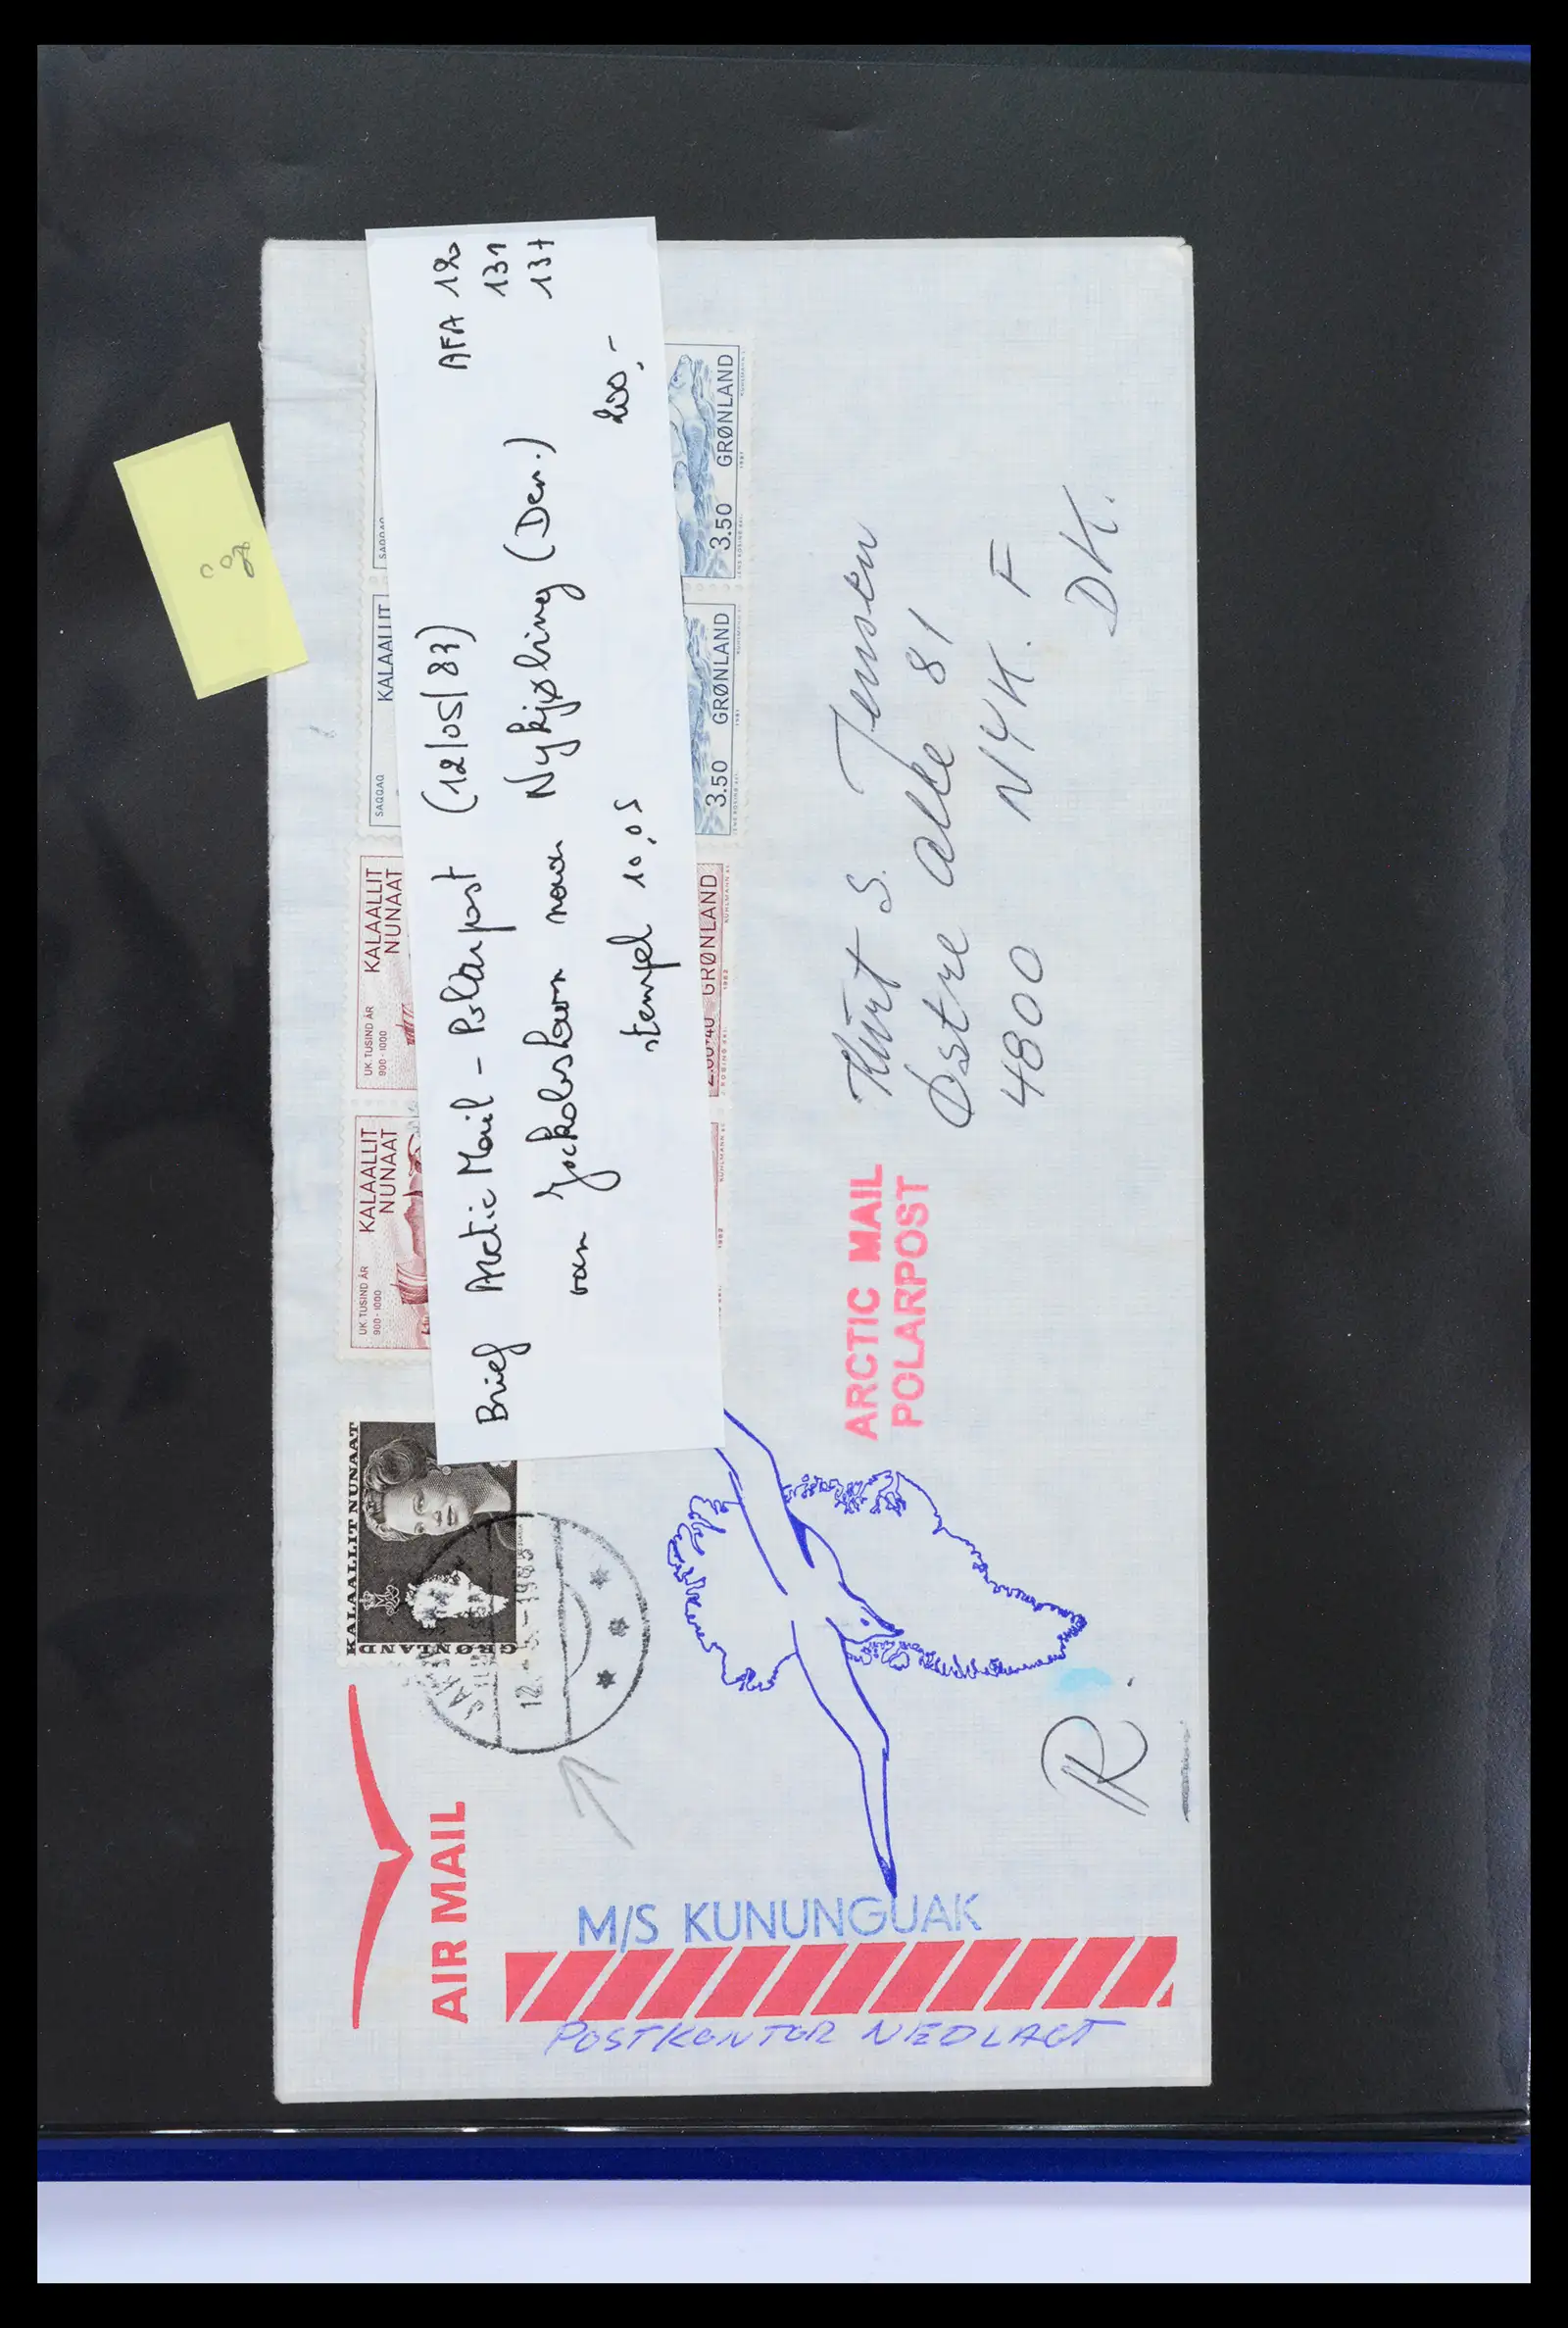 Brief Arctic Mail - Polarpost (12/05/83) AFA 120
131
137
van Jackobshavn naar Nykjøbing (Den.)
stempel 10,05
200,-
SAQQAQ
SAQQAQ
KALAALLIT
UK. TUSIND ÅR
900-1000
KALAALLIT
NUNAAT
UK. TUSIND ÅR
900-1000
KALAALLIT
NUNAAT
3.50 GRØNLAND
3.50 GRØNLAND
GRØNLAND
1981
1981
1982
1982
KALAALLIT NUNAAT
GRØNLAND
AIR MAIL
M/S KUNUNGUAK
POSTKONTOR NEDLAGT
ARCTIC MAIL
POLARPOST
Kurt S. Jensen
Østre alle 81
4800 NYK. F
DK.
R.